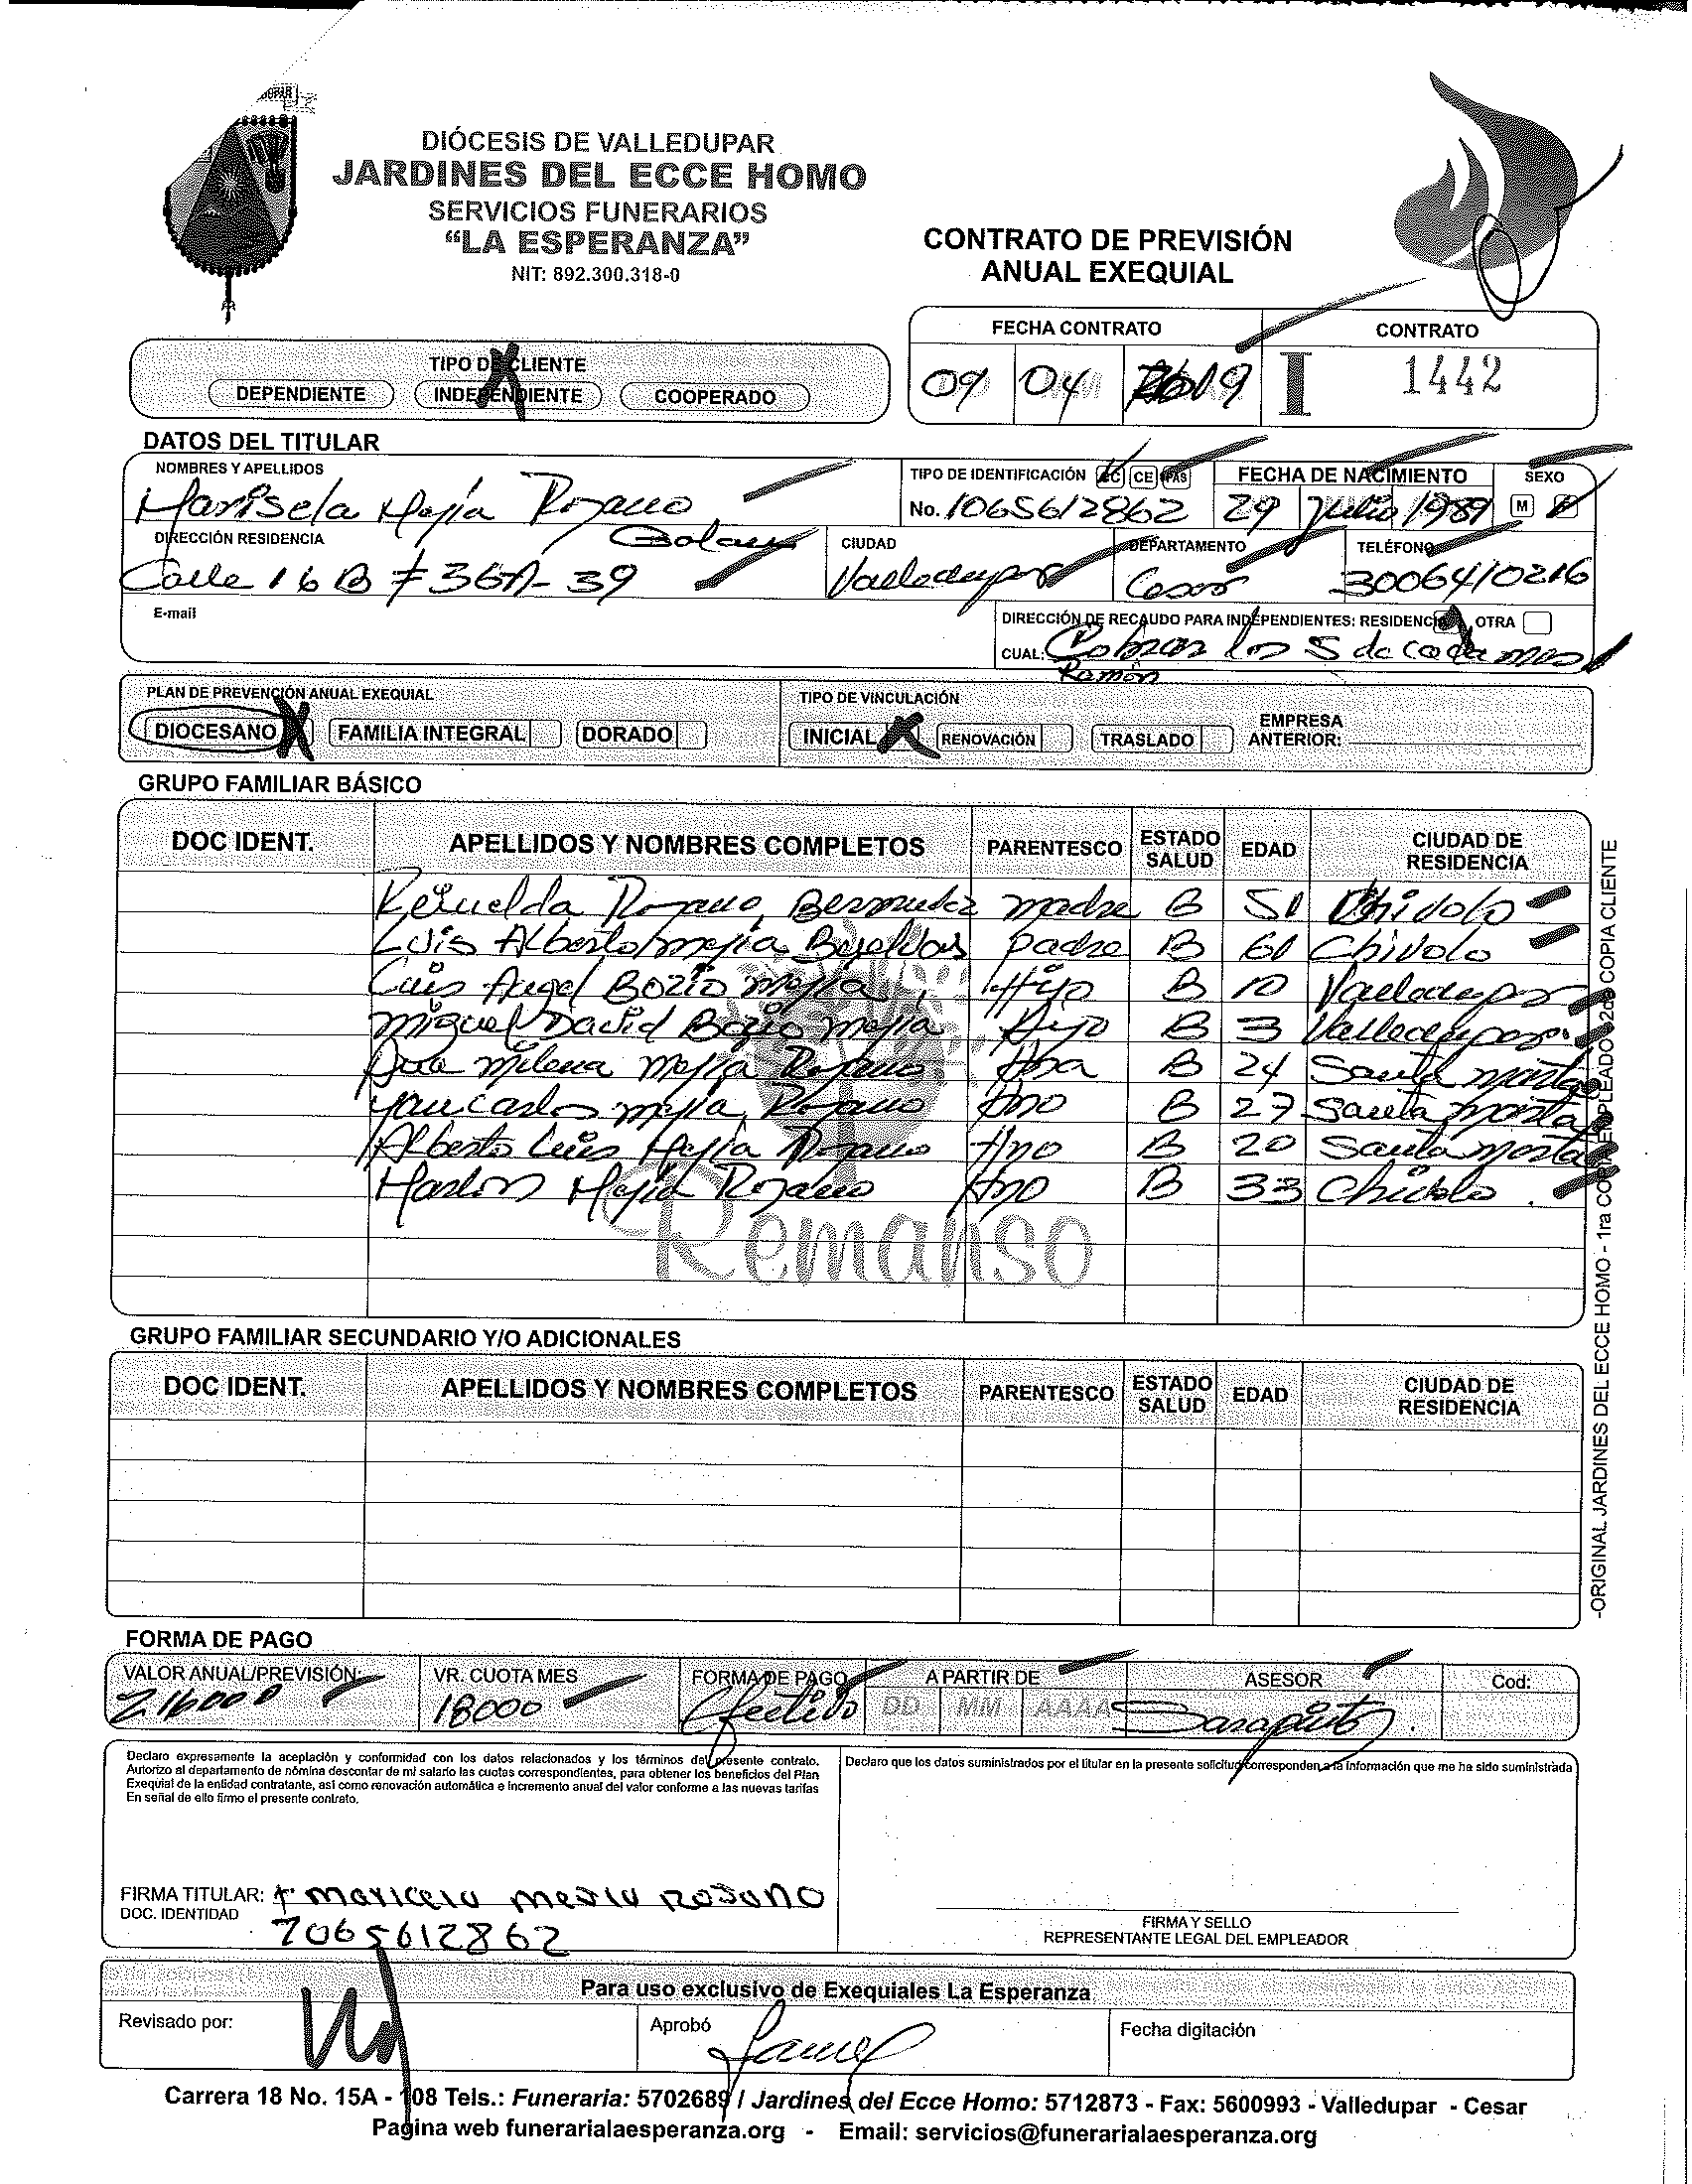 DIÓCESIS DE VALLEDUPAR
JARDINES DEL ECCE HOMO
SERVICIOS FUNERARIOS
“LA ESPERANZA”
NIT: 892.300.318-0
CONTRATO DE PREVISIÓN
ANUAL EXEQUIAL
FECHA CONTRATO CONTRATO
09 04 2019 I 1442
TIPO DE CLIENTE
DEPENDIENTE INDEPENDIENTE COOPERADO
DATOS DEL TITULAR
NOMBRES Y APELLIDOS TIPO DE IDENTIFICACIÓN CC CE PAS FECHA DE NACIMIENTO SEXO
Marisela Mejía Rojano No. 1065612862 29 Julio 1989 M F
DIRECCIÓN RESIDENCIA CIUDAD DEPARTAMENTO TELÉFONO
Calle 16 B # 36A-39 Valledupar Cesar 3006410216
E-mail DIRECCIÓN DE RECAUDO PARA INDEPENDIENTES: RESIDENCIA OTRA
CUAL: Cobrar los 5 de cada mes
Ramón
PLAN DE PREVENCIÓN ANUAL EXEQUIAL TIPO DE VINCULACIÓN
DIOCESANO FAMILIA INTEGRAL DORADO INICIAL RENOVACIÓN TRASLADO EMPRESA ANTERIOR:
GRUPO FAMILIAR BÁSICO
DOC IDENT. APELLIDOS Y NOMBRES COMPLETOS PARENTESCO ESTADO SALUD EDAD CIUDAD DE RESIDENCIA
Rojano Bermudez madre B 51 Chivolo
Luis Alberto mejía padre B 60 Chivolo
Luis Angel Bozio mejía Hijo B 10 Valledupar
Miguel David Bozio mejía Hijo B 3 Valledupar
milena mejía Rojano Hna B 24 Santa marta
Yan Carlos mejía Rojano Hno B 27 Santa marta
Alberto Luis Mejía Rojano Hno B 20 Santa marta
Marlon Mejía Rojano Hno B 33 Chivolo
Remanso
GRUPO FAMILIAR SECUNDARIO Y/O ADICIONALES
DOC IDENT. APELLIDOS Y NOMBRES COMPLETOS PARENTESCO ESTADO SALUD EDAD CIUDAD DE RESIDENCIA
-ORIGINAL JARDINES DEL ECCE HOMO - 1ra COPIA EMPLEADO 2da COPIA CLIENTE
FORMA DE PAGO
VALOR ANUAL/PREVISIÓN: VR. CUOTA MES FORMA DE PAGO A PARTIR DE ASESOR Cod:
216000 18000 Efectivo DD MM AAAA
Declaro expresamente la aceptación y conformidad con los datos relacionados y los términos del presente contrato.
Autorizo al departamento de nómina descontar de mi salario las cuotas correspondientes, para obtener los beneficios del Plan
Exequial de la entidad contratante, asi como renovación automática e incremento anual del valor conforme a las nuevas tarifas
En señal de ello firmo el presente contrato.
Declaro que los datos suministrados por el titular en la presente solicitud corresponden a la información que me ha sido suministrada
FIRMA TITULAR: maricela mejia rojano
DOC. IDENTIDAD
1065612862
FIRMA Y SELLO
REPRESENTANTE LEGAL DEL EMPLEADOR
Para uso exclusivo de Exequiales La Esperanza
Revisado por: Aprobó Fecha digitación
Carrera 18 No. 15A - 108 Tels.: Funeraria: 5702689 / Jardines del Ecce Homo: 5712873 - Fax: 5600993 - Valledupar - Cesar
Pagina web funerarialaesperanza.org - Email: servicios@funerarialaesperanza.org